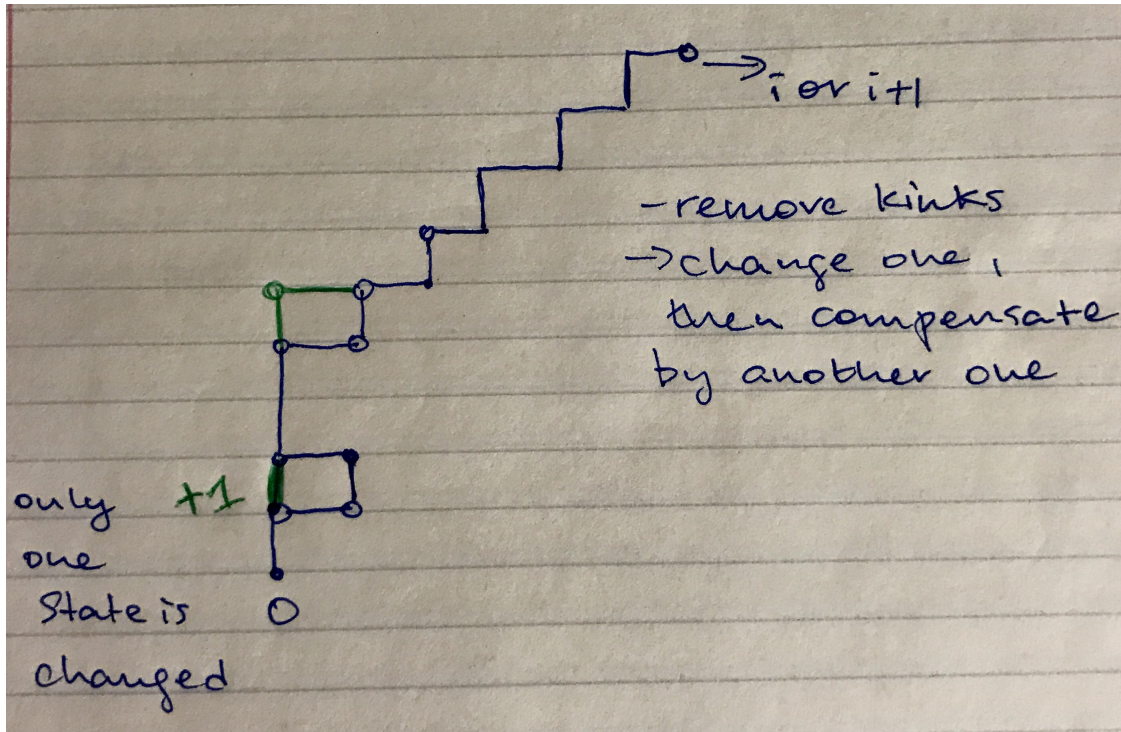 → i or i+1
- remove kinks
→ change one,
then compensate
by another one
+1
only
one
State is
changed
0